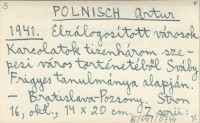 S
POLNISCH Artur
1941. Elzálogosított városok.
Karcolatok tizenhárom sze-
pesi város történetéből Sváby
Frigyes tanulmánya alapján.
– Bratislava-Pozsony, Stron
16, okt., 14 x 20 cm.